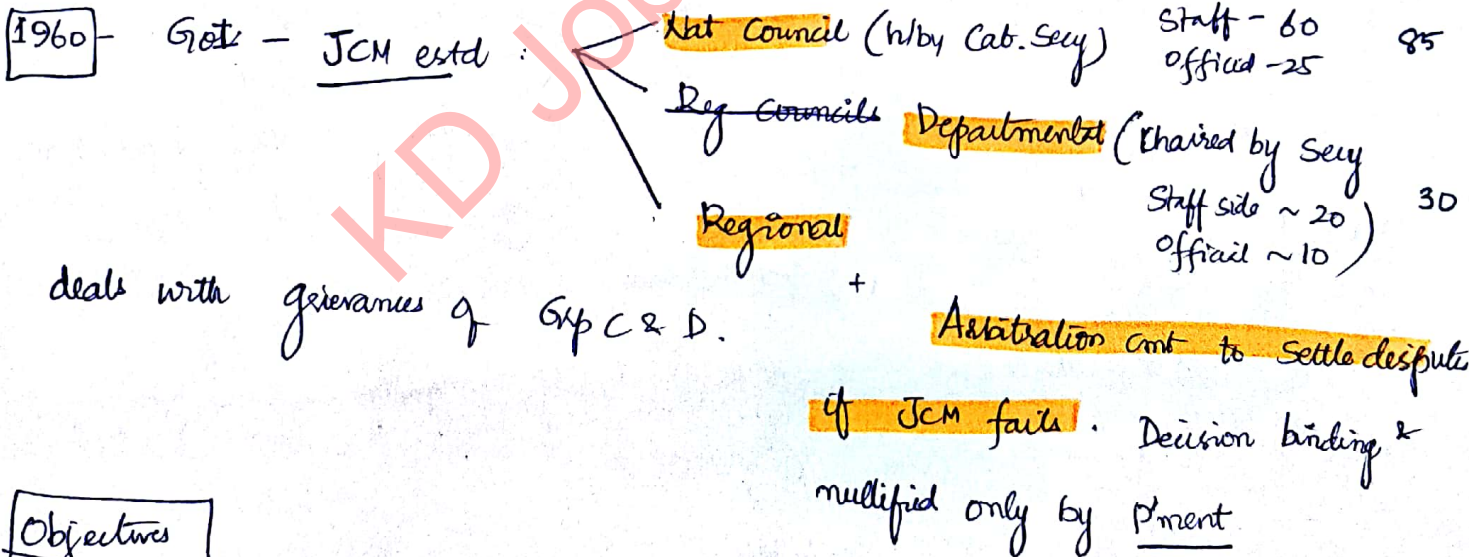 1960 - GoI - JCM estd : Nat Council (h/by Cab. Secy) Staff - 60 85
Official - 25
Reg Councils Departmental (Chaired by Secy
Staff side ~ 20 30
Official ~ 10)
Regional
deals with grievances of Grp C & D. +
Arbitration cmt to settle dispute
if JCM fails. Decision binding &
nullified only by P'ment
Objectives
KD Job